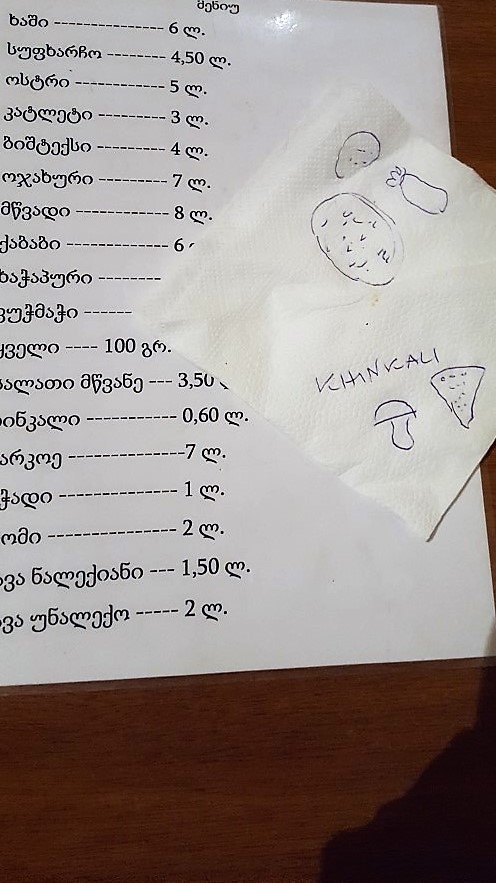 მენიუ
ხაში ---------------- 6 ლ.
სუფხარჩო -------- 4,50 ლ.
ოსტრი ------------ 5 ლ.
კატლეტი ---------- 3 ლ.
ბიშტექსი ---------- 4 ლ.
ოჯახური --------- 7 ლ.
მწვადი ------------ 8 ლ.
ქაბაბი ------------- 6
ხაჭაპური ---------
კუჭმაჭი ------
ყველი ---- 100 გრ.
სალათი მწვანე --- 3,50
ინკალი ----------- 0,60 ლ.
არკოე --------------7 ლ.
ჭადი -------------- 1 ლ.
ომი --------------- 2 ლ.
ავა ნალექიანი --- 1,50 ლ.
ავა უნალექო ----- 2 ლ.
KHINKALI